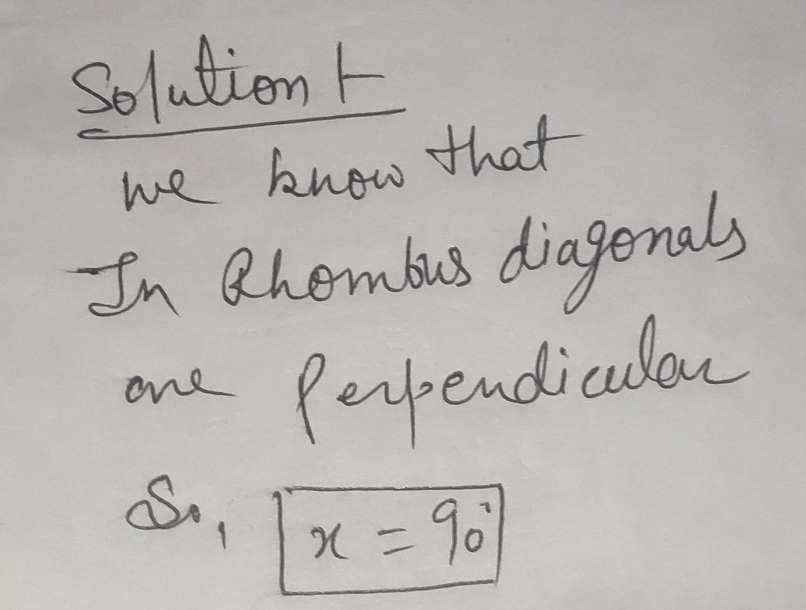 Solution :-
we know that
In Rhombus diagonals
are Perpendicular
So, x = 90°